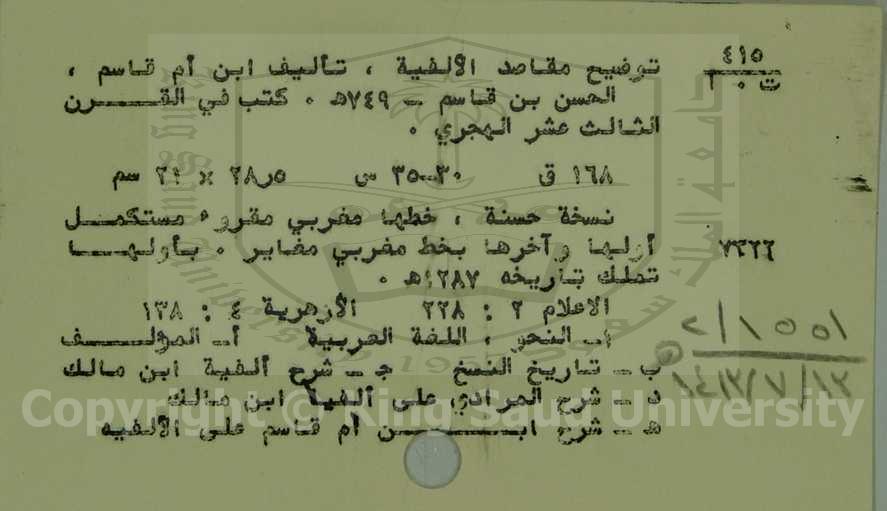 ٤١٥
ت ٠ ا
توضيح مقاصد الألفية ، تأليف ابن أم قاسم ،
الحسن بن قاسم ـ ٧٤٩هـ ٠ كتب في القــرن
الثالث عشر الهجري ٠
١٦٨ ق ٣٠ـ٣٥ س ٢٨٫٥ × ٢١ سم
نسخة حسنة ، خطها مغربي مقروء مستكمــل
أولها وآخرها بخط مغربي مغاير ٠ بأولهــا
تملك بتاريخه ١٢٨٧هـ ٠
٧٣٢٦
الاعلام ٢ : ٢٢٨ الأزهرية ٤ : ١٣٨
١ـ النحو ، اللغة العربية أـ المؤلــف
ب ـ تاريخ النسخ جـ ـ شرح ألفية ابن مالك
د ـ شرح المرادي على ألفية ابن مالك
هـ ـ شرح ابــــن أم قاسم على الألفيه
٢/١٥٥١
١٤١٣/٧/١٣
Copyright © King Saud University